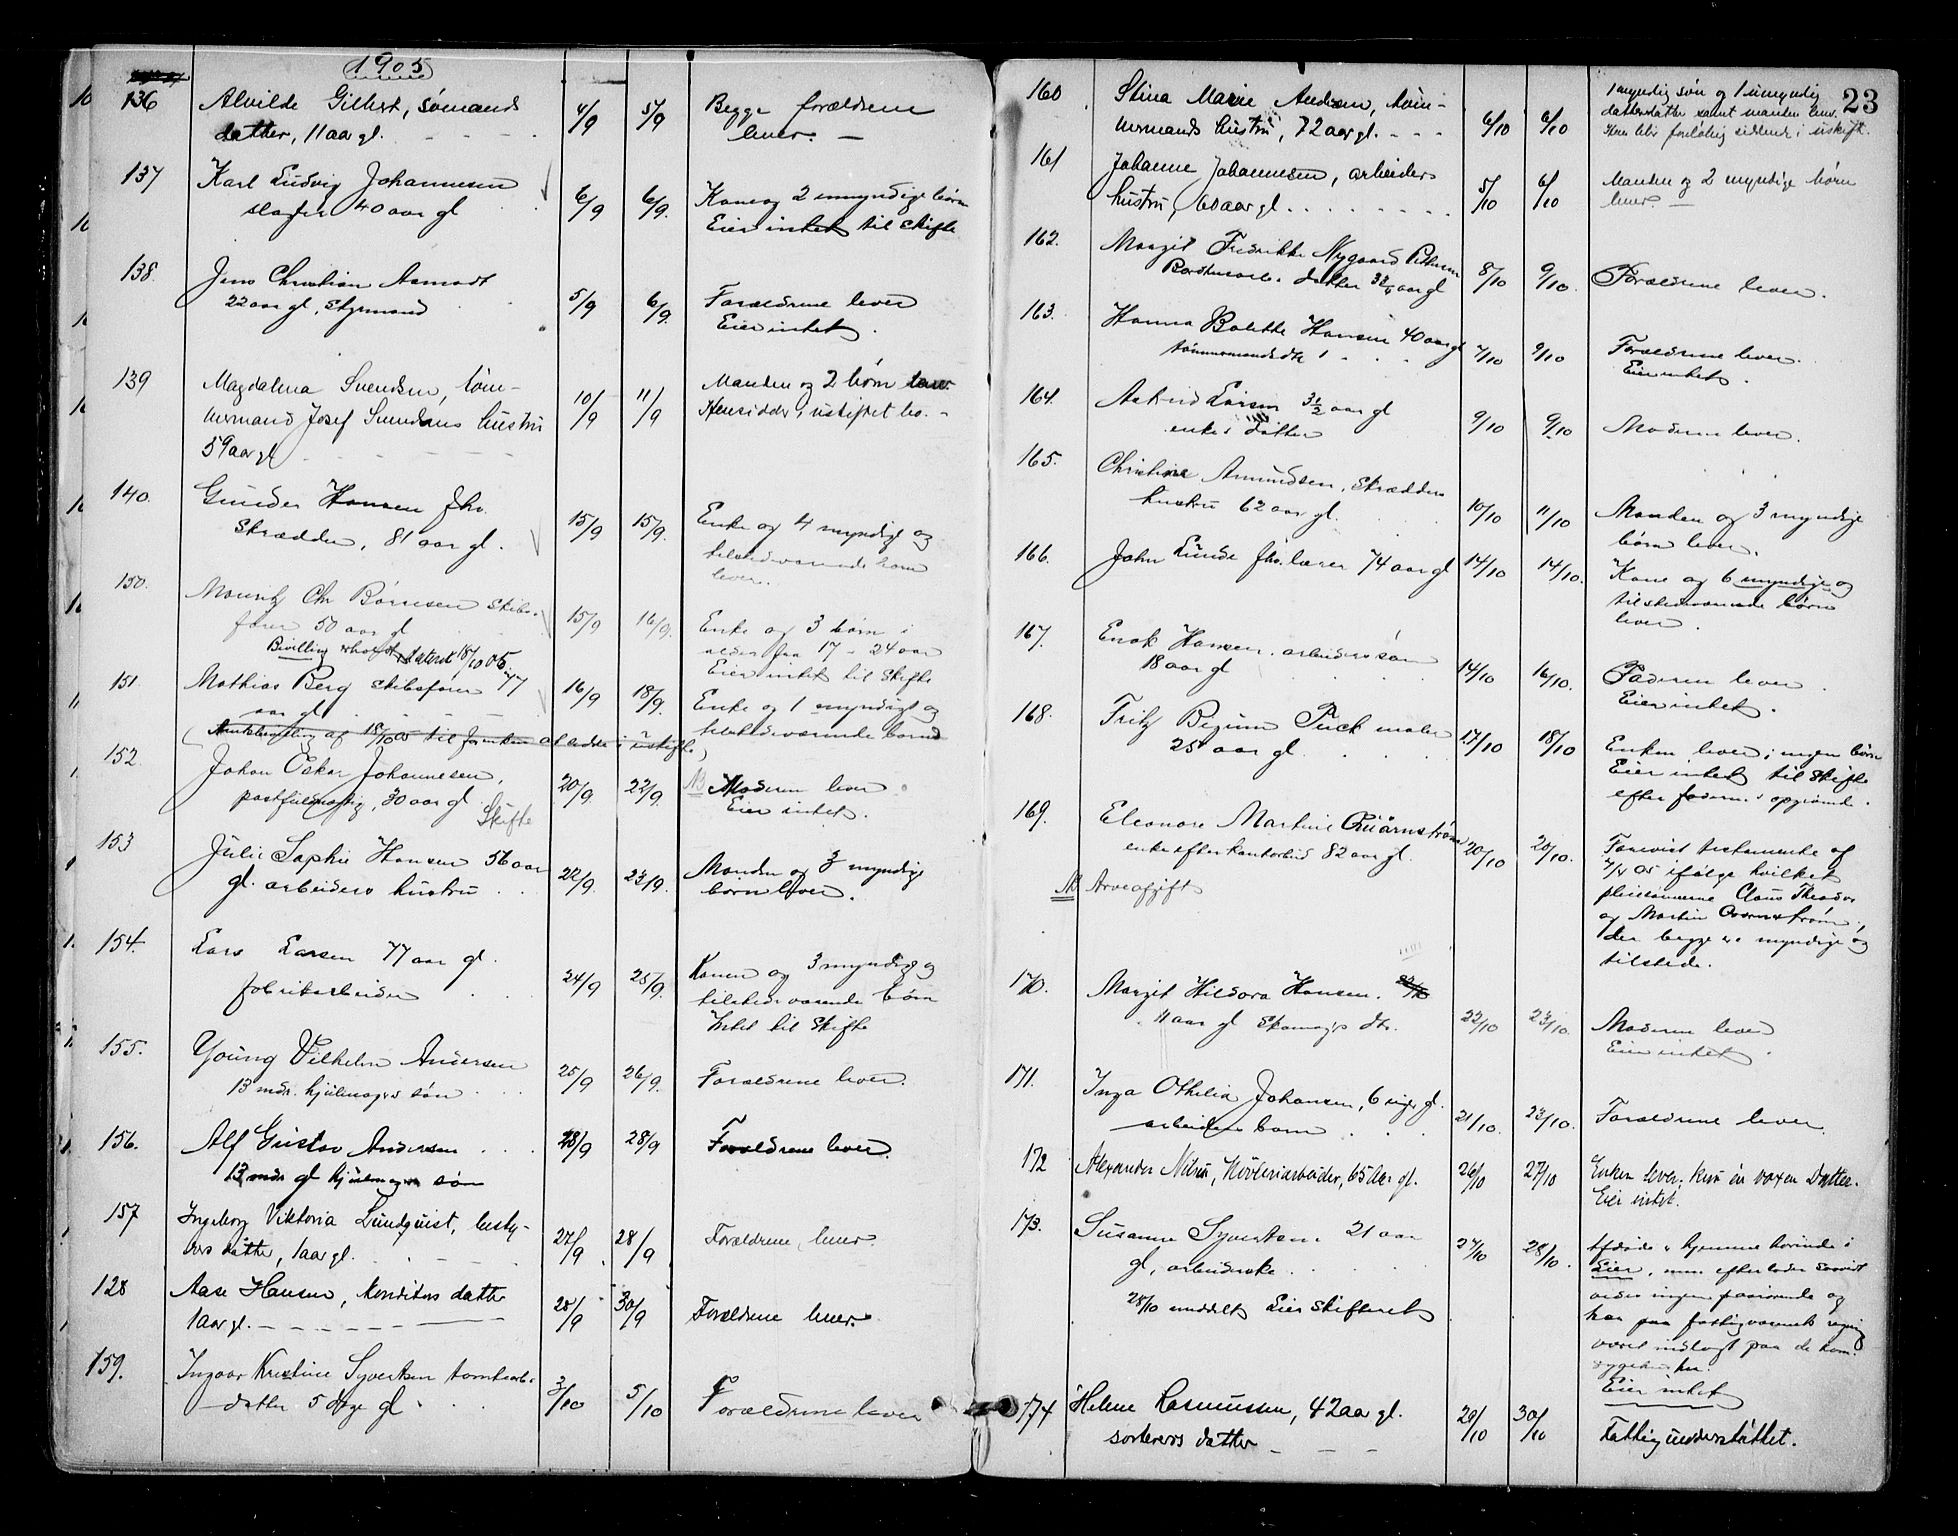 1905
136 Alvilde Gilbert, sømands 4/9 5/9 Begge forældrene
datter, 11 aar gl. lever. —
137 Karl Ludvig Johannesen 6/9 6/9. Kone og 2 umyndige børn
slagter 40 aar gl Eier intet til skifte
138. Jens Christian Aamodt 5/9 6/9. Forældrene lever
22 aar gl, Styrmand Eier intet.
139 Magdalena Svendsen, tøm- 10/9 11/9 Manden og 2 børn lever
mermand Josef Svendsens hustru Hensidder i uskiftet bo. -
59 aar gl
140. Gunder Hansen fhv. 15/9 15/9. Enke og 4 myndige og
Skrædder, 81 aar gl. tilstedeværende børn
lever.
150. Mouritz Chr Børresen Skibs- 15/9 16/9. Enke og 3 børn i
fører 50 aar gl alder fra 17 - 24 aar
Bevilling dateret 18/10 05. Eier intet til Skifte
151. Mathias Berg skibsfører 77 16/9 18/9. Enke og 1 myndigt og
aar gl tilstedeværende barn
(Amtsbevilling af 18/10 05 til for enken at sidde i uskifte)
152. Johan Oskar Johannesen, 20/9 22/9. NB Moderen lever
postfuldmægtig, 30 aar gl Eier intet.
Skifte
153 Julie Sophie Hansen 56 aar 22/9. 23/9. Manden og 3 myndige
gl. arbeiders hustru børn lever.
154. Lars Larsen 77 aar gl. 24/9 25/9. Konen og 3 myndige og
fabrikarbeider tilstedeværende børn
Intet til Skifte
155. Young Vilhelm Andersen 25/9 26/9. Forældrene lever.
13 mdr. hjulmagers søn
156. Alf Gustav Andersen 28/9 28/9 Forældrene lever.
13 mdr gl hjulmagers søn
157 Ingeborg Viktoria Lundquist, besty- 27/9 28/9 Forældrene lever.
rers datter, 1 aar gl.
128 Aase Hansen, konditors datter 28/9 30/9 Forældrene lever.
1 aar gl.
159. Ingvar Kristine Syvertsen tomtearb. 3/10 5/10 Forældrene lever
datter 5 dage gl
23
160 Stina Marie Andersen, tøm- 6/10 6/10 1 myndig søn og 1 umyndig
mermands hustru, 72 aar gl. datterdatter samt manden lever.
Han blir foreløbig siddende i uskift.
161 Johanne Johannesen, arbeiders 5/10 6/10 Manden og 2 myndige børn
hustru, 60 aar gl. lever. —
162. Margit Fredrikke Nygaard Pettersen 8/10 9/10. Forældrene lever.
datter 3 3/4 aar gl
163. Hanna Bolette Hansen 40 aar gl 7/10 9/10 Forældrene lever.
tømmermands dtr Eier intet.
164. Astrid Larsen 3 1/2 aar gl 9/10 9/10 Moderen lever.
enkes datter
165. Christine Amundsen, Skrædders 10/10 11/10 Manden og 3 myndige
hustru 62 aar gl. børn lever.
166. John Lunde fhv. lærer 74 aar gl 14/10 14/10. Kone og 6 myndige og
tilstedeværende børn
lever.
167. Enok Hansen. arbeiders søn 14/10 16/10. Faderen lever.
18 aar gl Eier intet.
168. Fritz Puck maler 17/10 18/10 Enken lever; ingen børn
25 aar gl. Eier intet til Skifte
efter faderen
169. Eleonore Martine Quarnstrøm 20/10 20/10. Forevist testamente af
enke efter kontorbud 82 aar gl. 05 ifølge hvilket
NB Arveafgift pleiesønnerne Claus Theodor
og Martin Qvarnstrøm,
der begge er myndige og
tilstede.
170. Margit Hildora Hansen. 22/10 23/10. Moderen lever
11 aar gl Skomagers dtr. Eier intet.
171. Inga Othelia Johansen, 6 uger gl. 21/10. 23/10. Forældrene lever.
arbeiders barn
172 Alexander Nilsen, Høvleriarbeider, 65 Aar gl. 26/10 27/10 Enken lever, kun én voxen Datter.
Eier intet.
173. Susanne Syvertsen. 21 aar 27/10 28/10. Afdøde er hjemmehørende i
gl, arbeiderske Eier, men efterlader saavidt
28/10 meddelt Eier Skifteret vides ingen paarørende og
har paa fattigvæsenets regning
været indlagt paa de kom.
sygehus her.
Eier intet
174 Helene Rasmussen, 42 aar gl. 29/10 30/10 Fattigunderstøttet.
sorterers datter